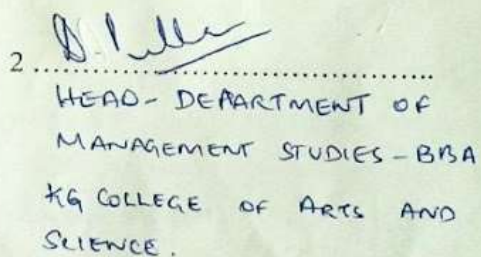 2 ..............................
HEAD - DEPARTMENT OF
MANAGEMENT STUDIES - BBA
KG COLLEGE OF ARTS AND
SCIENCE.